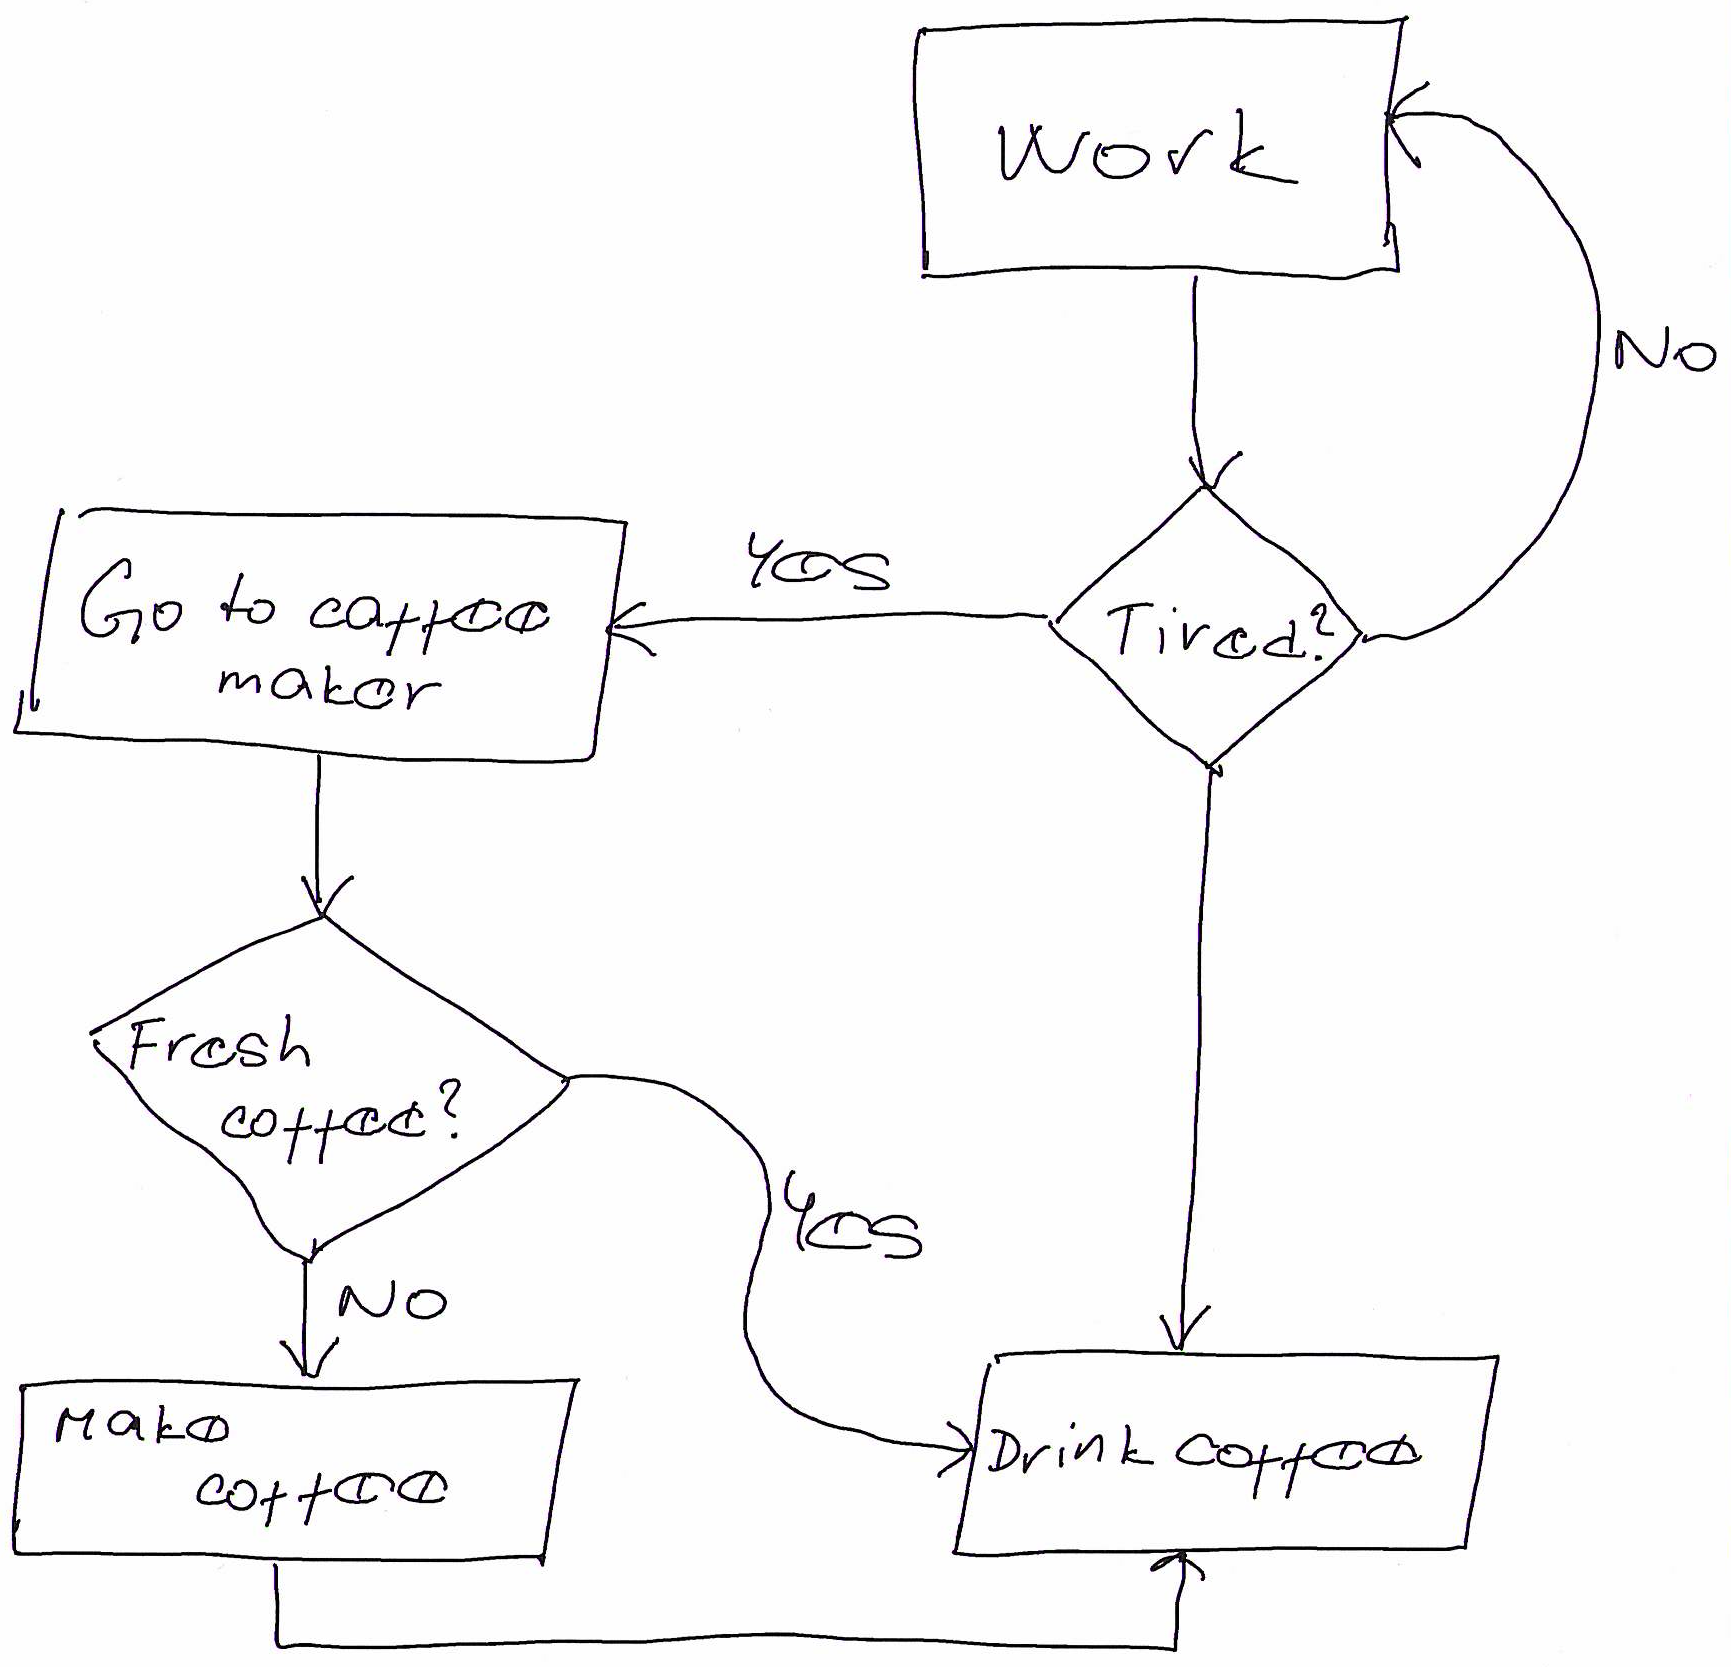 Work
No
Yes
Tired?
Go to coffee
maker
Fresh
coffee?
Yes
No
Make
coffee
Drink coffee